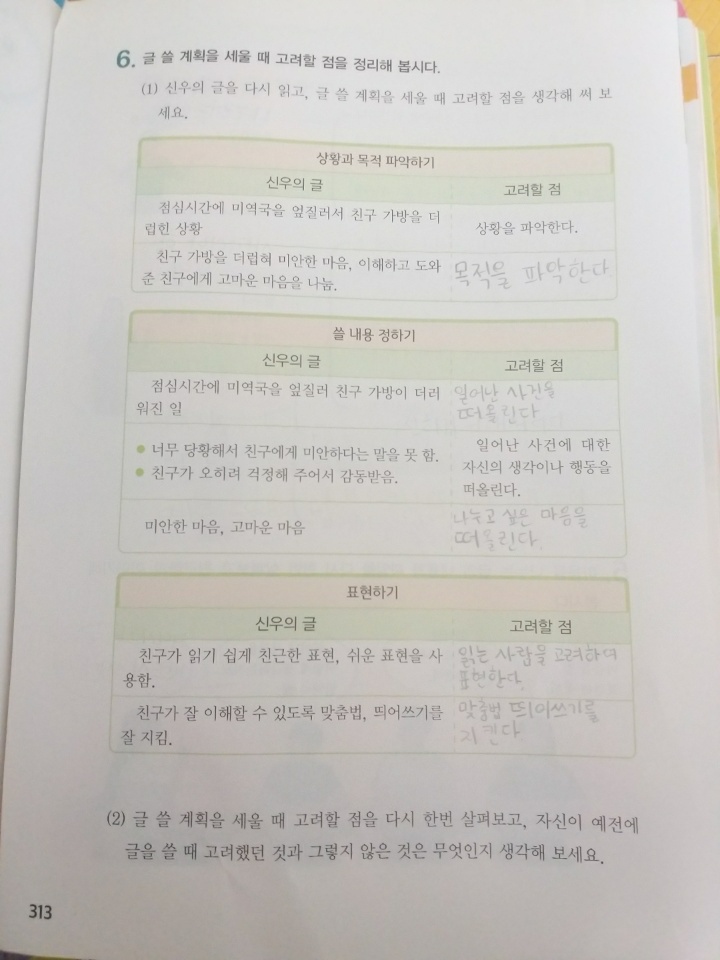 6. 글 쓸 계획을 세울 때 고려할 점을 정리해 봅시다.
(1) 신우의 글을 다시 읽고, 글 쓸 계획을 세울 때 고려할 점을 생각해 써 보
세요.
상황과 목적 파악하기
신우의 글
고려할 점
점심시간에 미역국을 엎질러서 친구 가방을 더
럽힌 상황
상황을 파악한다.
친구 가방을 더럽혀 미안한 마음, 이해하고 도와
준 친구에게 고마운 마음을 나눔.
목적을 파악한다
쓸 내용 정하기
신우의 글
고려할 점
점심시간에 미역국을 엎질러 친구 가방이 더러
워진 일
일어난 사건을
떠올린다
● 너무 당황해서 친구에게 미안하다는 말을 못 함.
● 친구가 오히려 걱정해 주어서 감동받음.
일어난 사건에 대한
자신의 생각이나 행동을
떠올린다.
미안한 마음, 고마운 마음
나누고 싶은 마음을
떠올린다.
표현하기
신우의 글
고려할 점
친구가 읽기 쉽게 친근한 표현, 쉬운 표현을 사
용함.
읽는 사람을 고려하여
표현한다.
친구가 잘 이해할 수 있도록 맞춤법, 띄어쓰기를
잘 지킴.
맞춤법 띄어쓰기를
지킨다
(2) 글 쓸 계획을 세울 때 고려할 점을 다시 한번 살펴보고, 자신이 예전에
글을 쓸 때 고려했던 것과 그렇지 않은 것은 무엇인지 생각해 보세요.
313